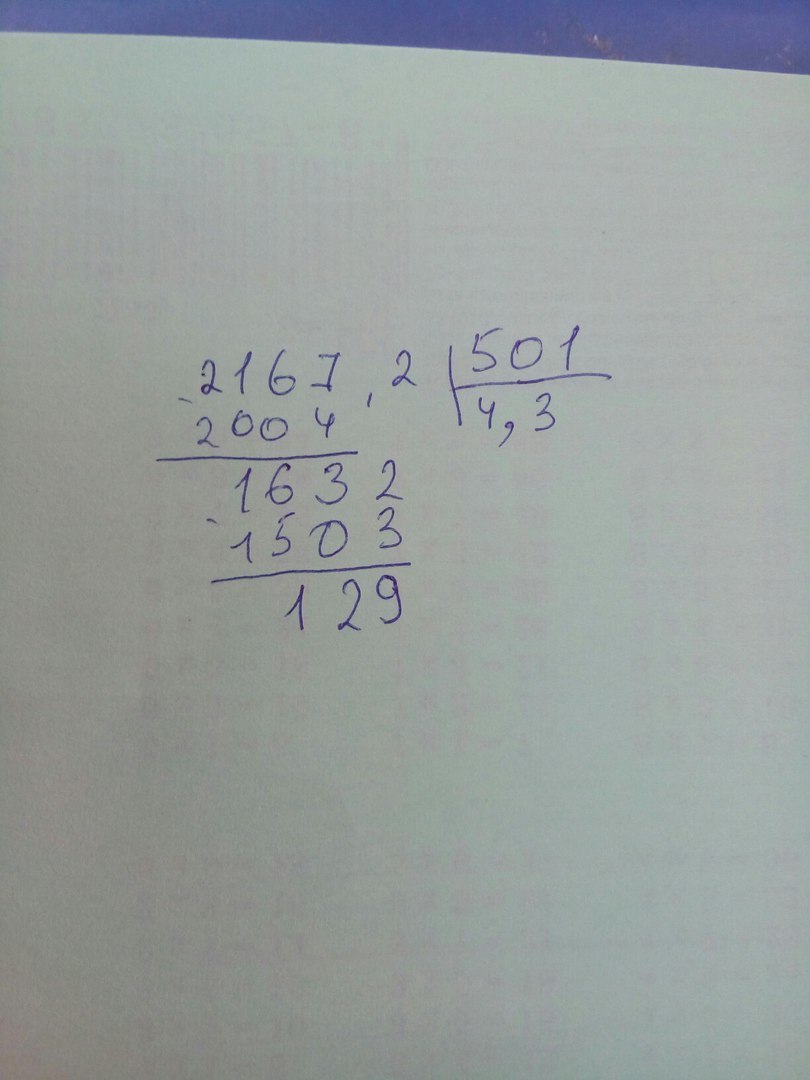 2167,2 501
2004 4,3
1632
1503
129